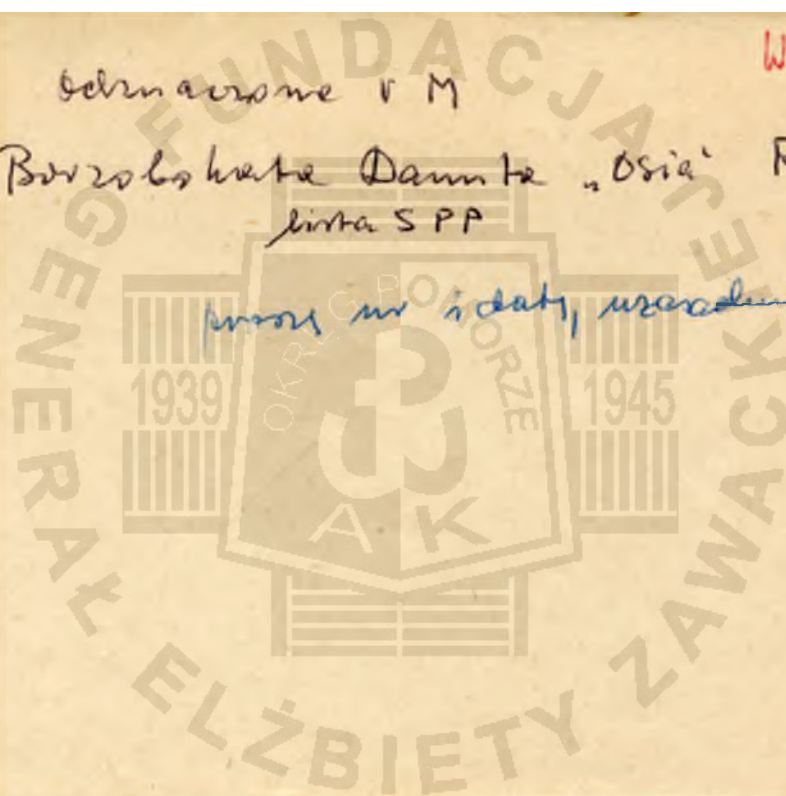 W
odznaczone V M
Borzobohata Danuta „Osia”
lista SPP
proszę nr i datę, uzasadn
FUNDACJA GENERAŁ ELŻBIETY ZAWACKIEJ
OKRĘG POMORZE
1939 1945
AK